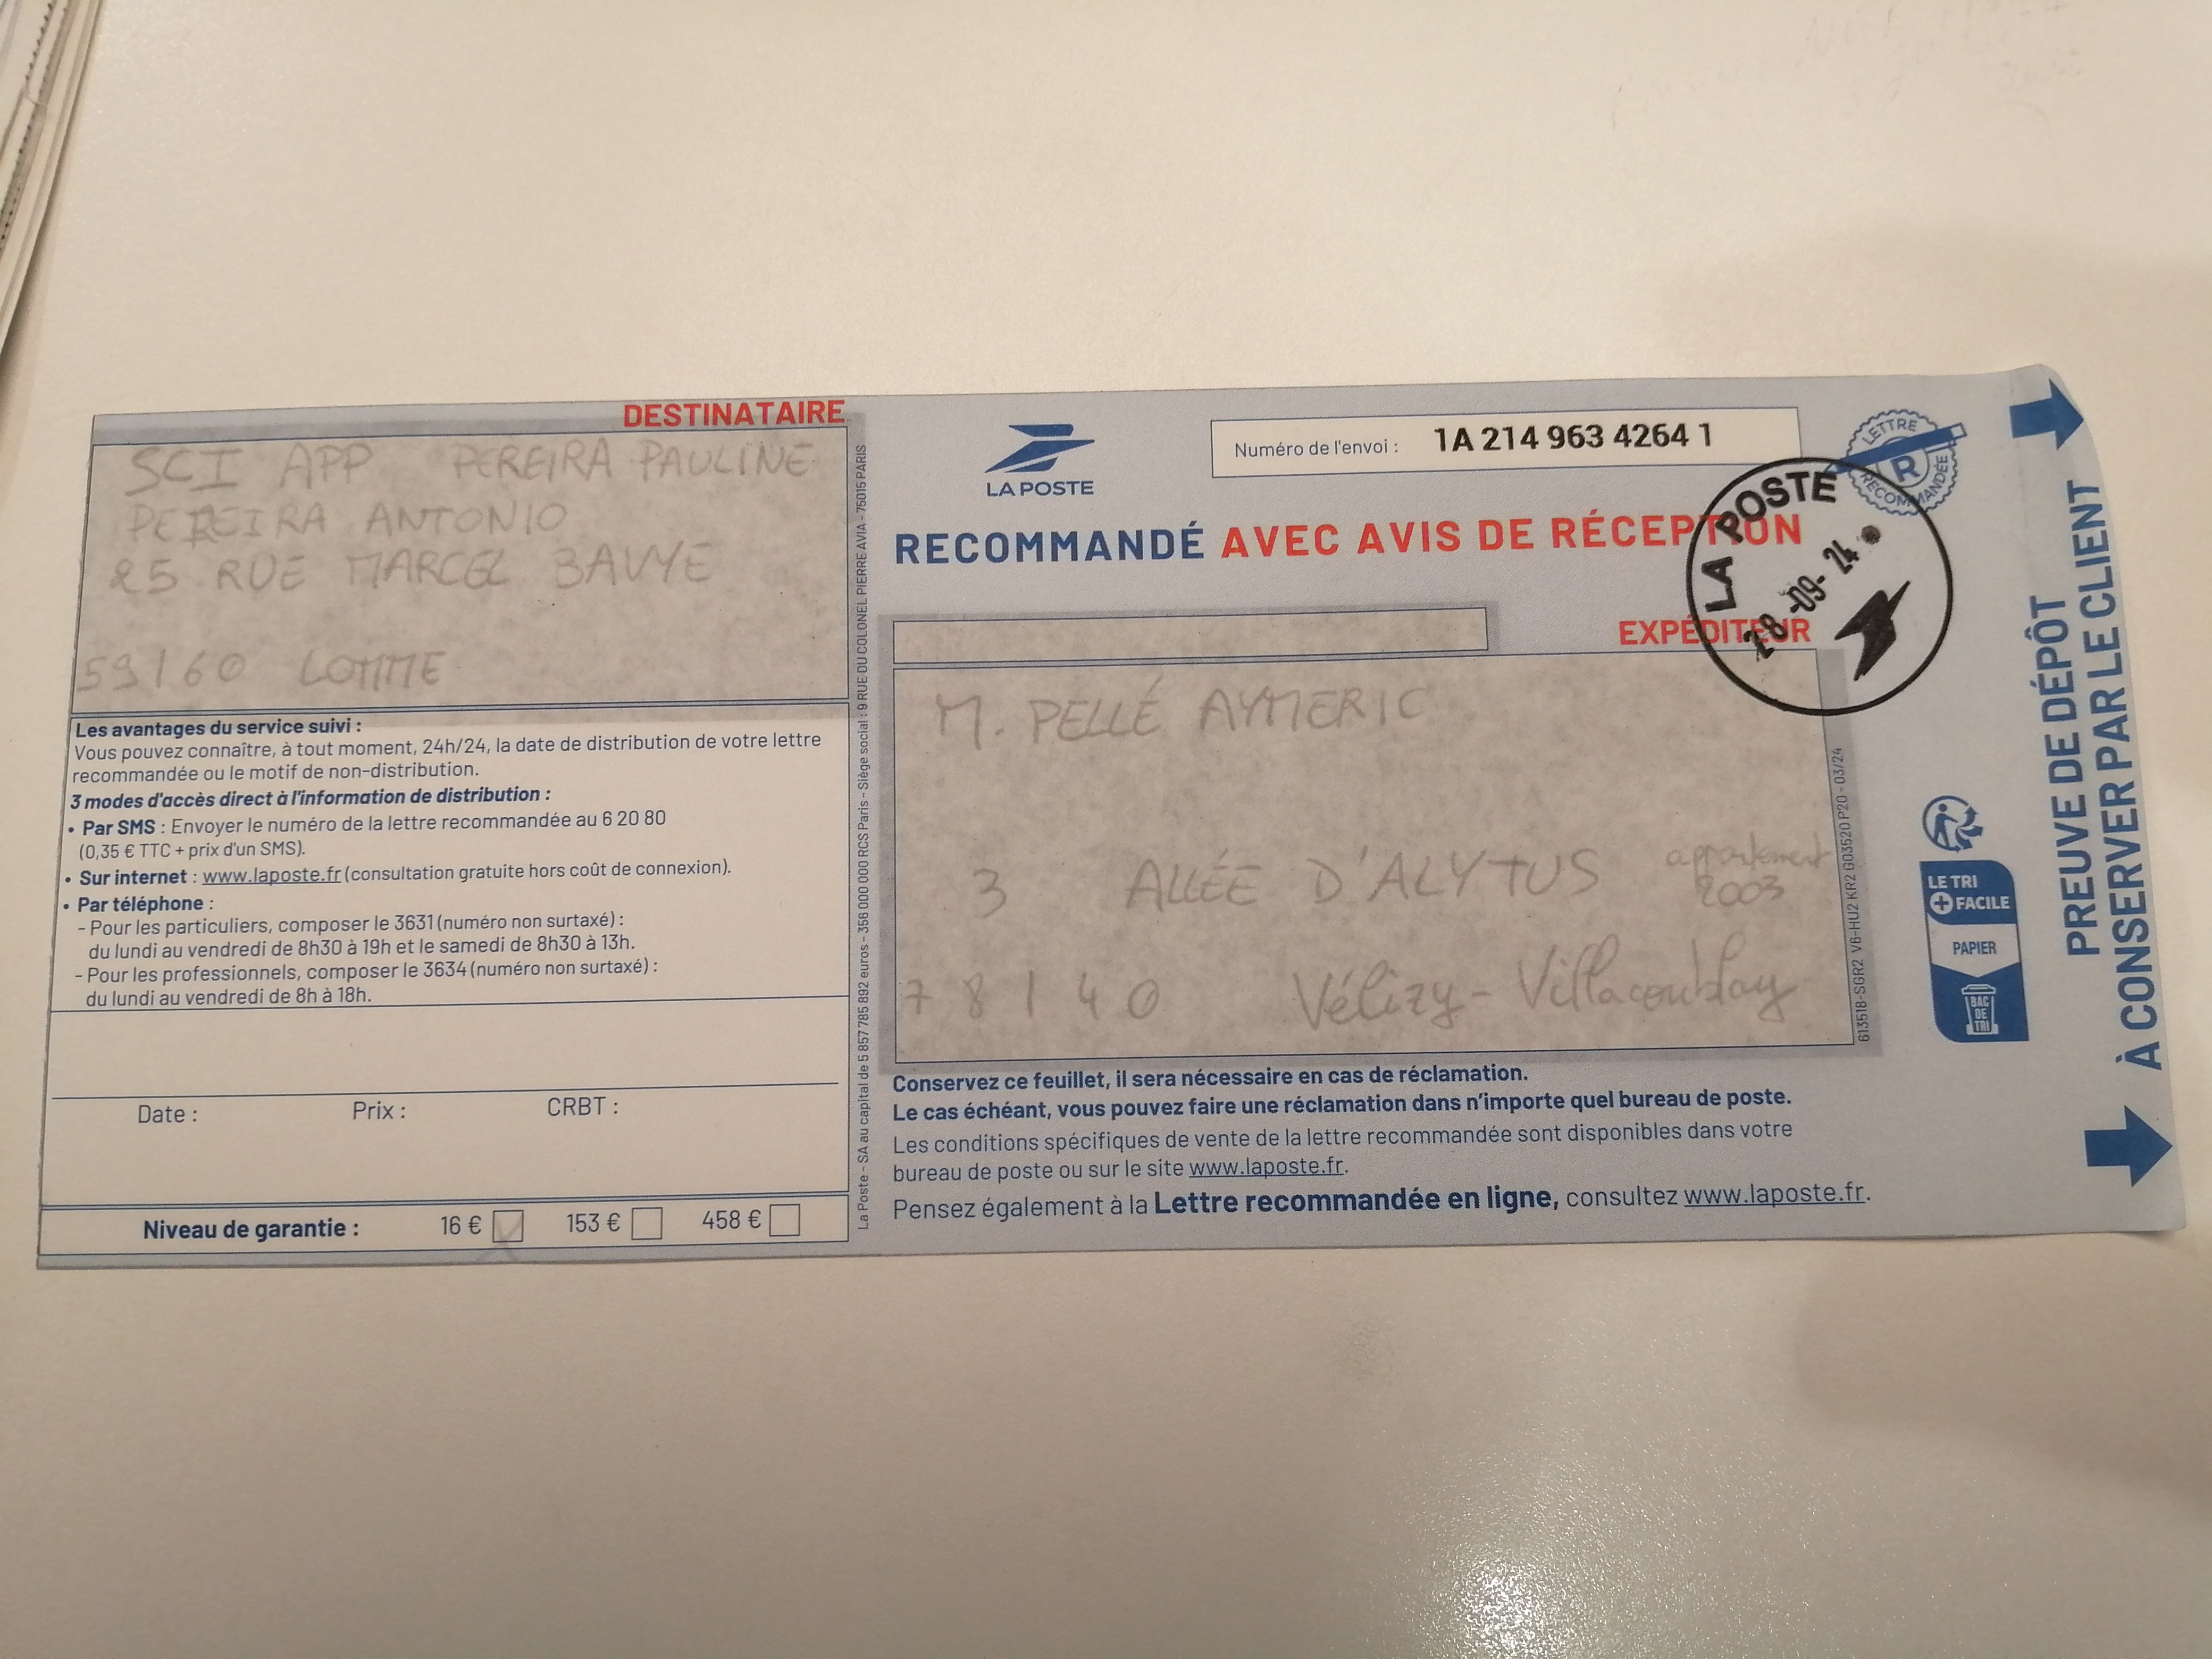 DESTINATAIRE
SCI APP PEREIRA PAULINE
PEREIRA ANTONIO
25 RUE MARCEL BAVYE
59160 LOMME
Les avantages du service suivi :
Vous pouvez connaître, à tout moment, 24h/24, la date de distribution de votre lettre
recommandée ou le motif de non-distribution.
3 modes d'accès direct à l'information de distribution :
• Par SMS : Envoyer le numéro de la lettre recommandée au 6 20 80
(0,35 € TTC + prix d'un SMS).
• Sur internet : www.laposte.fr (consultation gratuite hors coût de connexion).
• Par téléphone :
- Pour les particuliers, composer le 3631 (numéro non surtaxé) :
du lundi au vendredi de 8h30 à 19h et le samedi de 8h30 à 13h.
- Pour les professionnels, composer le 3634 (numéro non surtaxé) :
du lundi au vendredi de 8h à 18h.
Date : Prix : CRBT :
Niveau de garantie : 16 € 153 € 458 €
La Poste - SA au capital de 5 857 785 892 euros - 356 000 000 RCS Paris - Siège social : 9 RUE DU COLONEL PIERRE AVIA - 75015 PARIS
LA POSTE
Numéro de l'envoi : 1A 214 963 4264 1
LETTRE RECOMMANDÉE
R
RECOMMANDÉ AVEC AVIS DE RÉCEPTION
LA POSTE
28-09-24
EXPÉDITEUR
M. PELLÉ AYMERIC
3 ALLÉE D'ALYTUS appartement
2003
78140 Vélizy-Villacoublay
613518-SGR2 V6-HU2 KR2 G03520 P20 - 03/24
Conservez ce feuillet, il sera nécessaire en cas de réclamation.
Le cas échéant, vous pouvez faire une réclamation dans n'importe quel bureau de poste.
Les conditions spécifiques de vente de la lettre recommandée sont disponibles dans votre
bureau de poste ou sur le site www.laposte.fr.
Pensez également à la Lettre recommandée en ligne, consultez www.laposte.fr.
LE TRI
+ FACILE
PAPIER
BAC
DE
TRI
PREUVE DE DÉPÔT
À CONSERVER PAR LE CLIENT